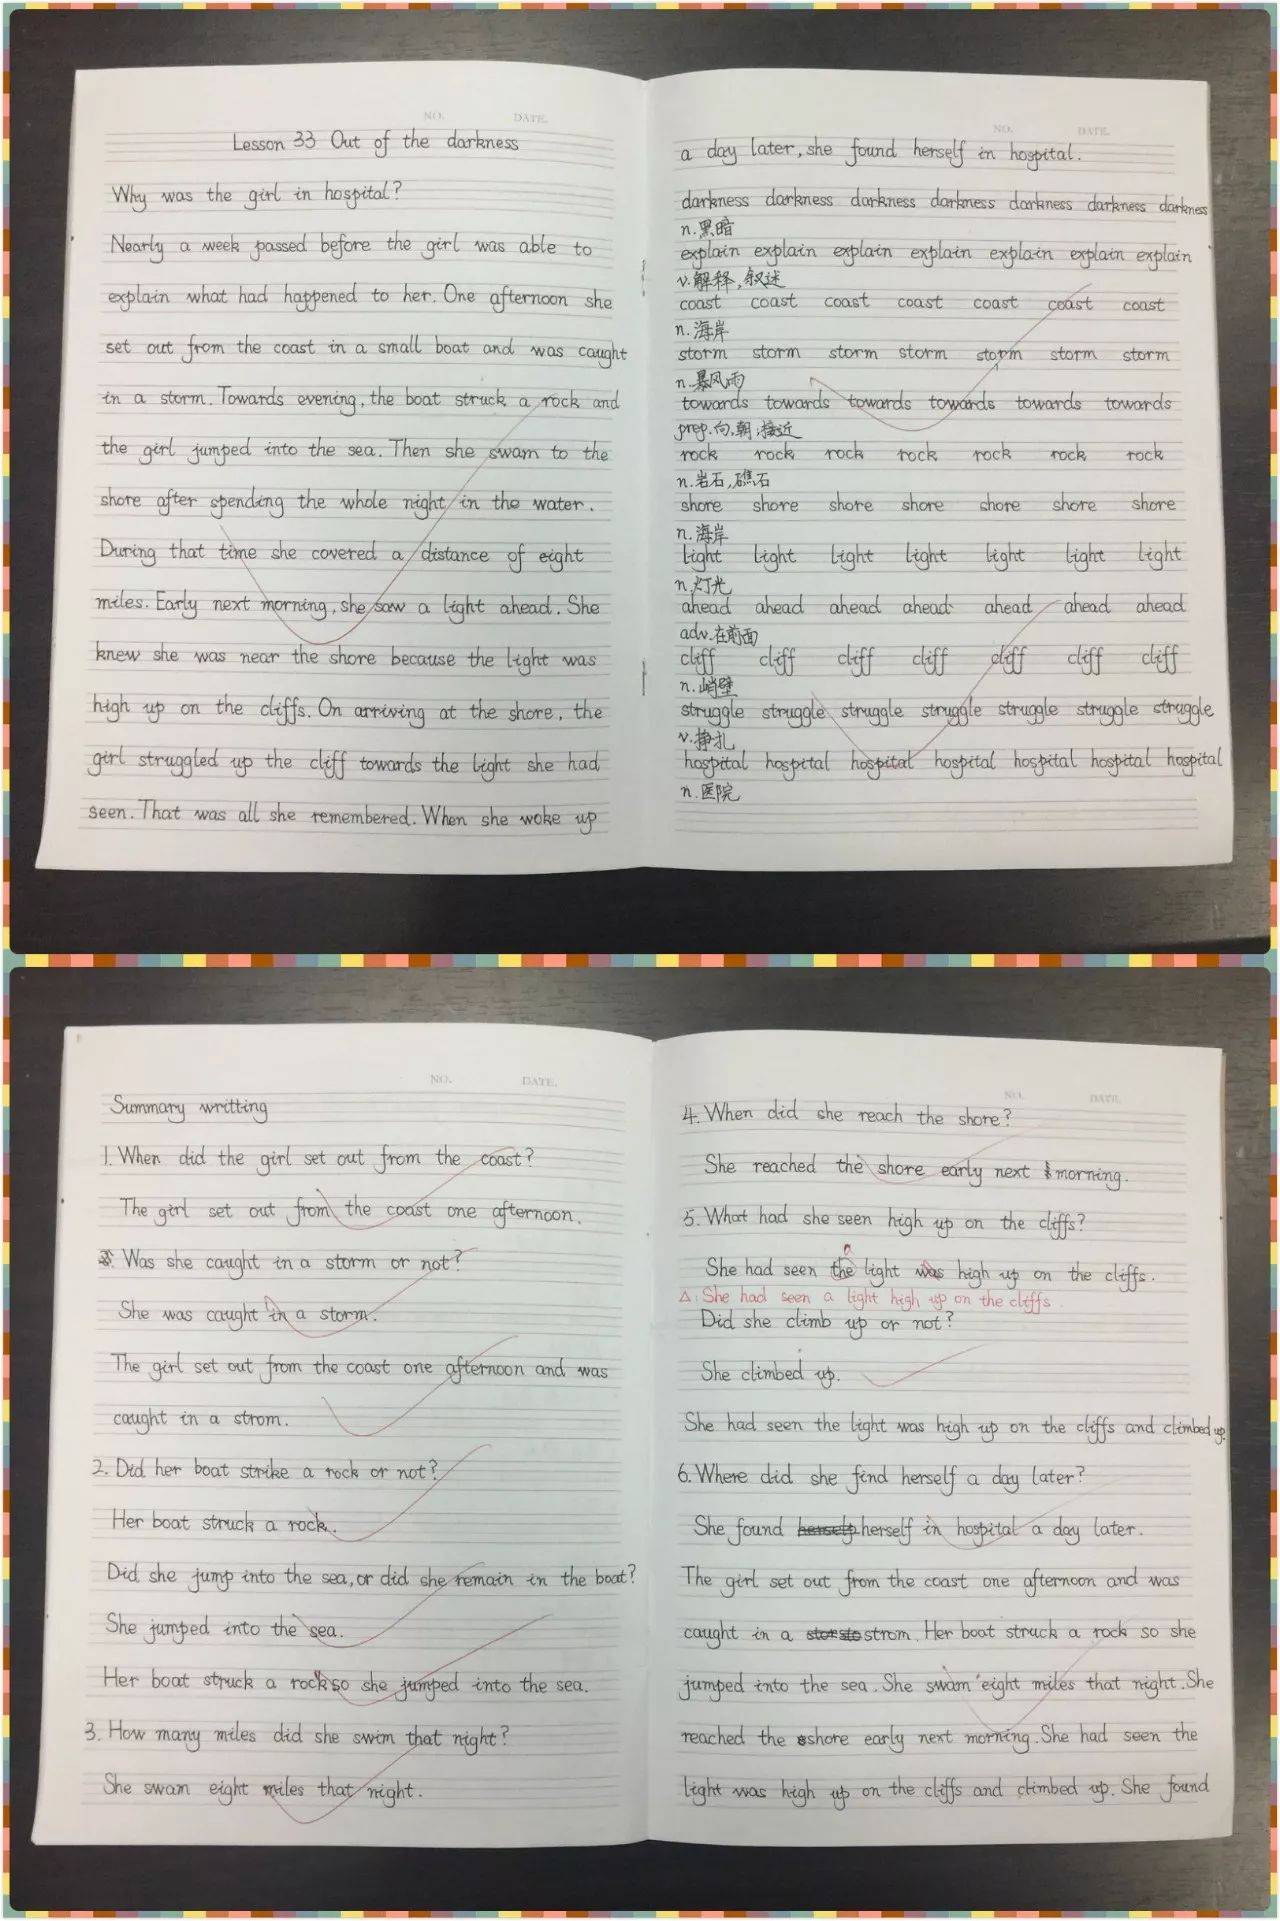 NO. DATE.
Lesson 33 Out of the darkness
Why was the girl in hospital?
Nearly a week passed before the girl was able to
explain what had happened to her. One afternoon she
set out from the coast in a small boat and was caught
in a storm. Towards evening, the boat struck a rock and
the girl jumped into the sea. Then she swam to the
shore after spending the whole night in the water.
During that time she covered a distance of eight
miles. Early next morning, she saw a light ahead. She
knew she was near the shore because the light was
high up on the cliffs. On arriving at the shore, the
girl struggled up the cliff towards the light she had
seen. That was all she remembered. When she woke up
NO. DATE.
a day later, she found herself in hospital.
darkness darkness darkness darkness darkness darkness darkness
n. 黑暗
explain explain explain explain explain explain explain
v. 解释, 叙述
coast coast coast coast coast coast coast
n. 海岸
storm storm storm storm storm storm storm
n. 暴风雨
towards towards towards towards towards towards
prep. 向, 朝; 接近
rock rock rock rock rock rock rock
n. 岩石, 礁石
shore shore shore shore shore shore shore
n. 海岸
light light light light light light light
n. 灯光
ahead ahead ahead ahead ahead ahead ahead
adv. 在前面
cliff cliff cliff cliff cliff cliff cliff
n. 峭壁
struggle struggle struggle struggle struggle struggle struggle
v. 挣扎
hospital hospital hospital hospital hospital hospital hospital
n. 医院
NO. DATE.
Summary writting
1. When did the girl set out from the coast?
The girl set out from the coast one afternoon.
Was she caught in a storm or not?
She was caught in a storm.
The girl set out from the coast one afternoon and was
caught in a strom.
2. Did her boat strike a rock or not?
Her boat struck a rock.
Did she jump into the sea, or did she remain in the boat?
She jumped into the sea.
Her boat struck a rock so she jumped into the sea.
3. How many miles did she swim that night?
She swam eight miles that night.
NO. DATE.
4. When did she reach the shore?
She reached the shore early next morning.
5. What had she seen high up on the cliffs?
a
She had seen the light was high up on the cliffs.
△: She had seen a light high up on the cliffs.
Did she climb up or not?
She climbed up.
She had seen the light was high up on the cliffs and climbed up.
6. Where did she find herself a day later?
She found herself herself in hospital a day later.
The girl set out from the coast one afternoon and was
caught in a strom. Her boat struck a rock so she
jumped into the sea. She swam eight miles that night. She
reached the shore early next morning. She had seen the
light was high up on the cliffs and climbed up. She found